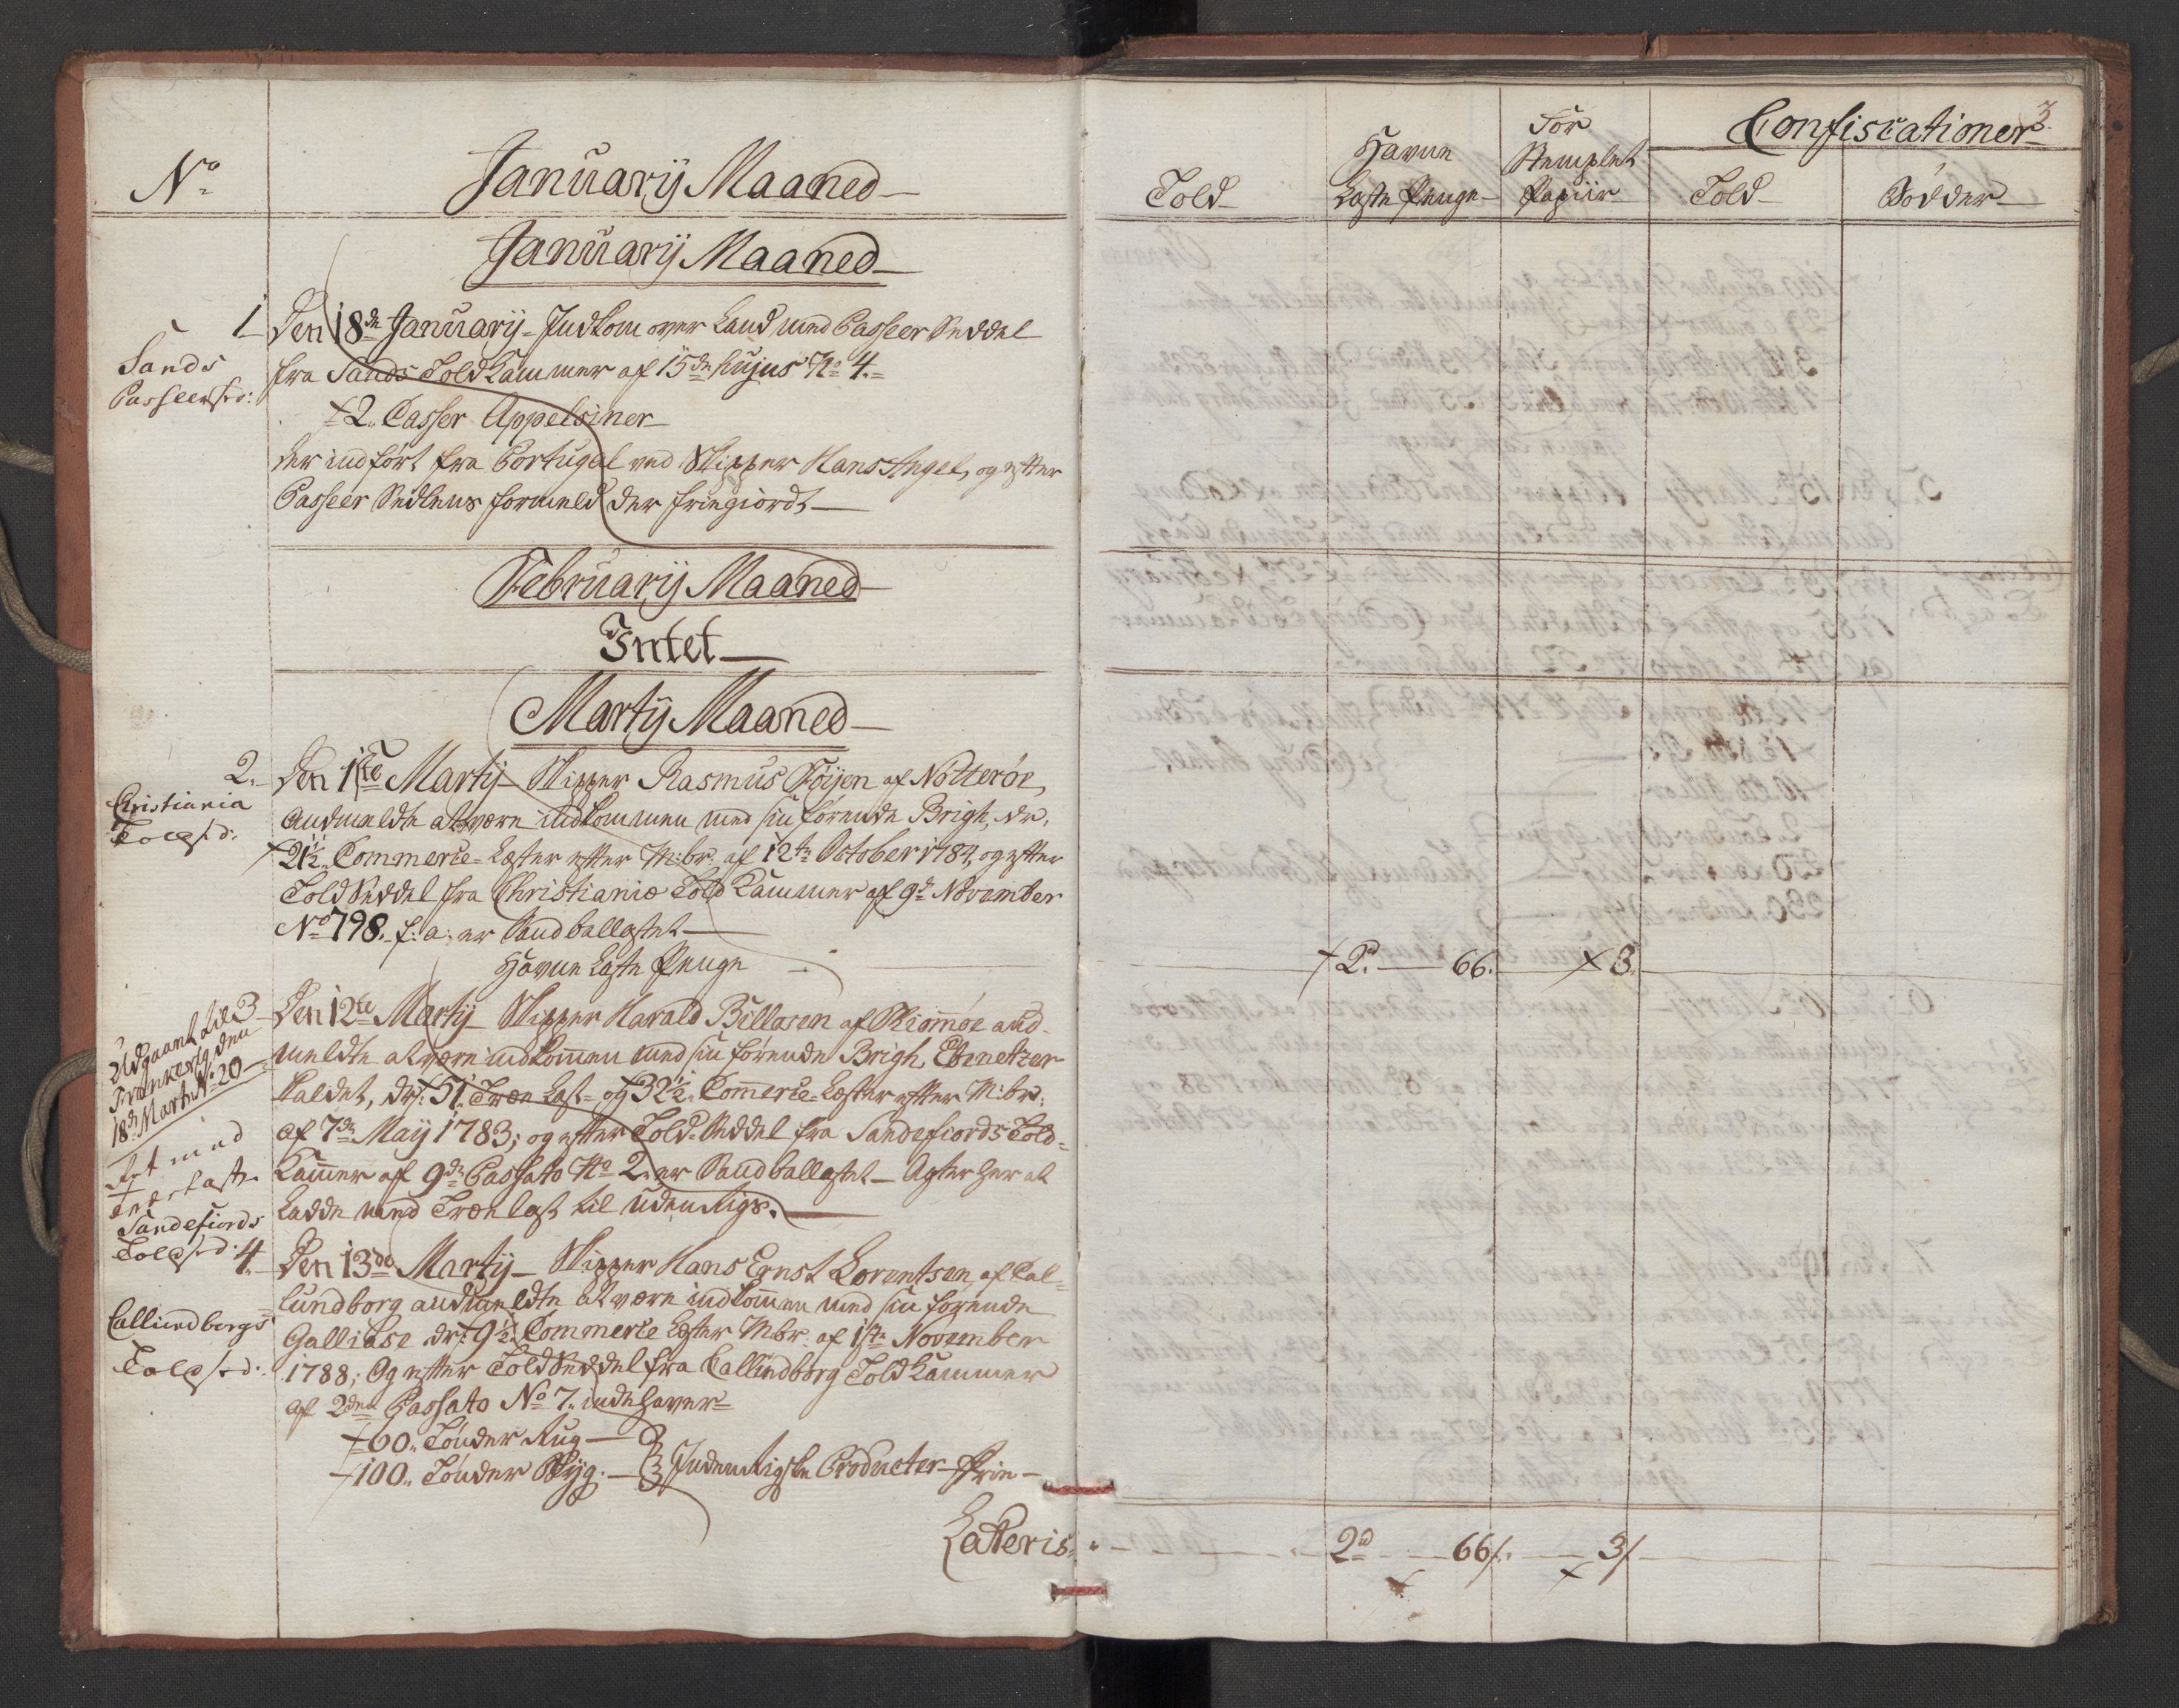 No
Januarij Maaned
Januarij Maaned
1
Sands
Passeersed:
Den 18de Januarij - Indkom over Land med Passeer Seddel
fra Sands Told Kammer af 15de hujus No 4.
2 Casser Appelsiner
der indført fra Portugal ved Skipper Hans Angel, og efter
Passeer Sedlens formeld der friegiordt
Februarij Maaned
Intet
Martij Maaned
2.
Christiania
Toldsed:
Den 1ste Martij - Skipper Rasmus Föijen af Nøtterøe,
andmeldte at være indkommen med sin førende Brigh, dr.
21½ Commerce-Læster efter M:br: af 12te October 1784, og efter
Told Seddel fra Christianiæ Told Kammer af 9de November
No 798. f: a: er Sandballastet
Havne Læste Penge
3
Udgaaet til
den
18de Martij No 20
med
Trælast
Sandefiords
Toldsed:
Den 12te Martij - Skipper Harald Billesen af Kiomøe and-
meldte at være indkommen med sin førende Brigh, Ebenetzer
kaldet, dr: 51 Træ Last- og 32½ Commerce-Læster efter M:br:
af 7de Maij 1783; og efter Told-Seddel fra Sandefiords Told-
Kammer af 9de Passato No 2. er Sandballastet - Agter her at
Ladde med Trælast til udenrigs.
4.
Callundborgs
Toldsed:
Den 13de Martij - Skipper Hans Ernst Lorentsen af Cal-
lundborg andmeldte at være indkommen med sin førende
Galliase dr: 9½ Commerce Læster Mbr. af 1ste November
1788; Og efter Told Seddel fra Callundborg Told Kammer
af 2den Passato No 7. indehaver
60. Tønder Rug
100. Tønder Byg.
Indenrigske Producter frie
Lateris
3.
Told
Havne
Læste Penge
For
Stemplet
Papiir
Confiscationer
Told
Bödder
2. 66. 3.
2d 66/ 3/